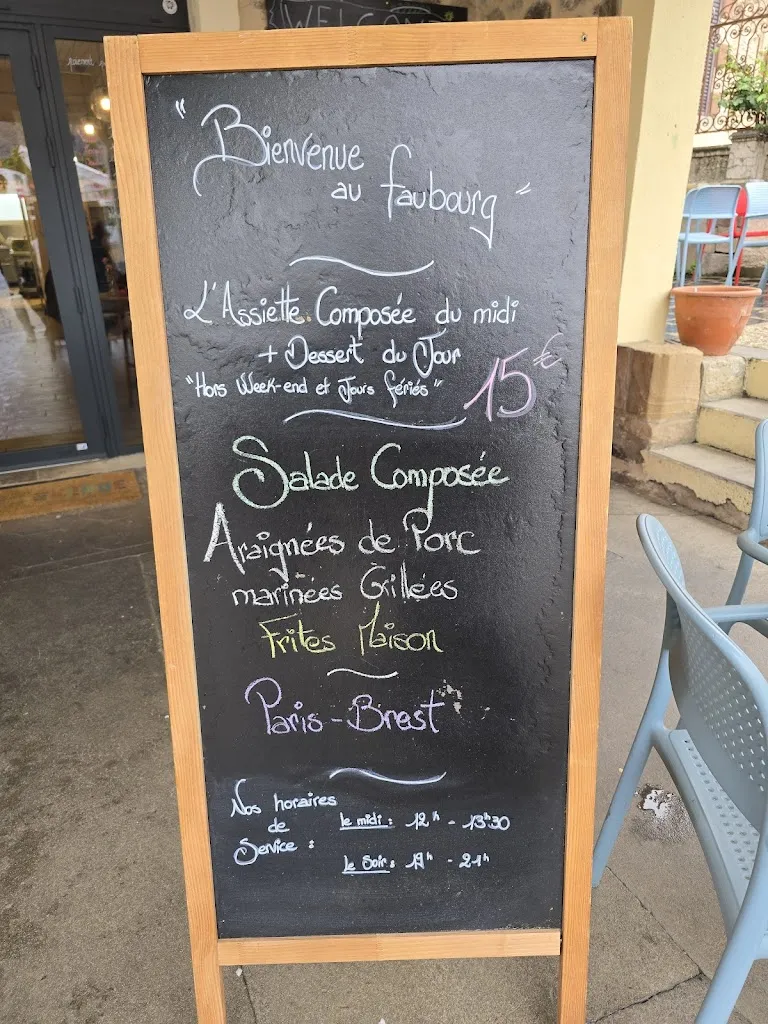 WELCOME
"Bienvenue
au faubourg"
L'Assiette Composée du midi
+ Dessert du Jour
"Hors Week-end et Jours fériés"
15€
Salade Composée
Araignées de Porc
marinées Grillées
Frites Maison
Paris-Brest
Nos horaires
de
Service :
le midi : 12h - 13h30
le Soir : 19h - 21h